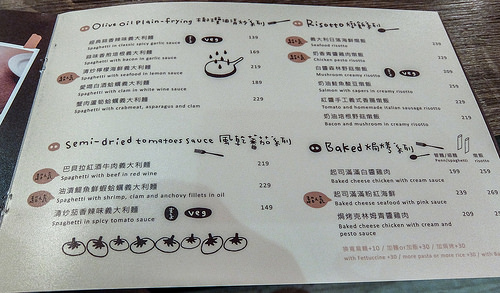 Olive Oil Plain-frying 橄欖油清炒系列
經典蒜香辣味義大利麵 veg
Spaghetti in classic spicy garlic sauce 169
蒜味香煎培根義大利麵
Spaghetti with bacon in garlic sauce 189
清炒檸檬海鮮義大利麵
Spaghetti with seafood in lemon sauce 229
愛嗑白酒蛤蠣義大利麵
Spaghetti with clam in white wine sauce 189
蟹肉蘆筍蛤蠣義大利麵
Spaghetti with crabmeat, asparagus and clam 229
Semi-dried tomatoes sauce 風乾蕃茄系列
巴貝拉紅酒牛肉義大利麵 219
Spaghetti with beef in red wine
油漬鯷魚鮮蝦蛤蠣義大利麵 229
Spaghetti with shrimp, clam and anchovy fillets in oil
清炒茄香辣味義大利麵 veg 149
Spaghetti in spicy tomato sauce
Risotto 燉飯系列
義大利日落海鮮燉飯
Seafood risotto
奶油青醬雞肉燉飯
Chicken pesto risotto
白醬森林野菇燉飯 veg
Mushroom creamy risotto
奶油鮭魚酸豆燉飯
Salmon with capers in creamy risotto
紅醬手工義式香腸燉飯
Tomato and homemade Italian sausage risotto
奶油培根野菇燉飯
Bacon and mushroom in creamy risotto
Baked 焗烤系列
筆管/細麵 燉飯
Penne/spaghetti risotto
起司滿滿白醬雞肉 199 209
Baked cheese chicken with cream sauce
起司滿滿粉紅海鮮 239 269
Baked cheese seafood with pink sauce
焗烤克林姆青醬雞肉 209
Baked cheese chicken with cream and
pesto sauce
換寬扁麵+10 / 加麵or加飯+30 / 加焗烤+30
with Fettuccine +30 / more pasta or more rice +30 / with Ba